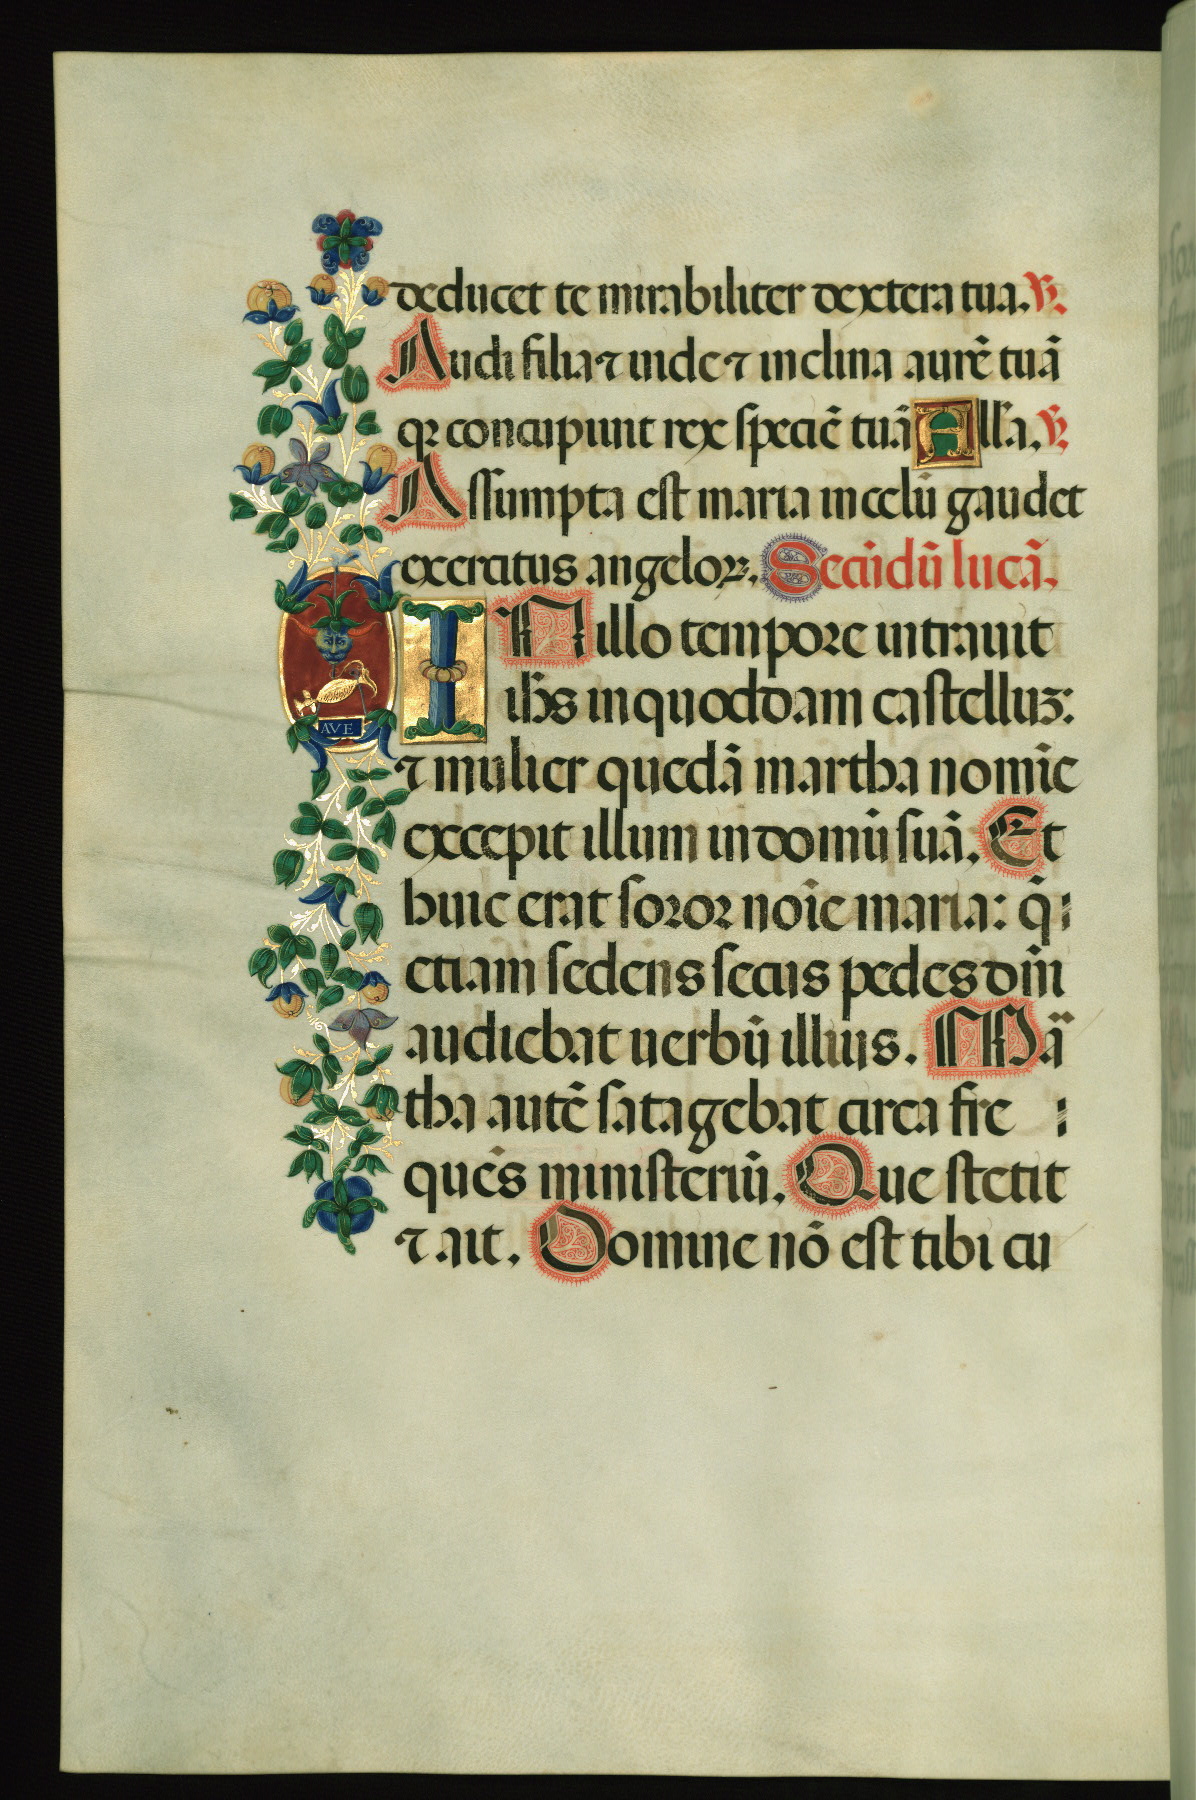 deducet te mirabiliter dextera tua. ℣.
Audi filia ⁊ uide ⁊ inclina aurē tuā
qꝛ concupiuit rex speciē tuā Alla. ℣.
Assumpta est maria in celū gaudet
exercitus angeloꝝ. Secūdū lucā.
IN illo tempore intrauit
ihs in quoddam castelluʒ:
⁊ mulier quedā martha nomīe
excepit illum in domū suā. Et
huic erat soror noīe maria: q̄
etiam sedens secus pedes dn̄i
audiebat uerbū illius. Mar
tha autē satagebat circa fre
quēs ministeriū. Que stetit
⁊ ait. Domine nō est tibi cu
AVE